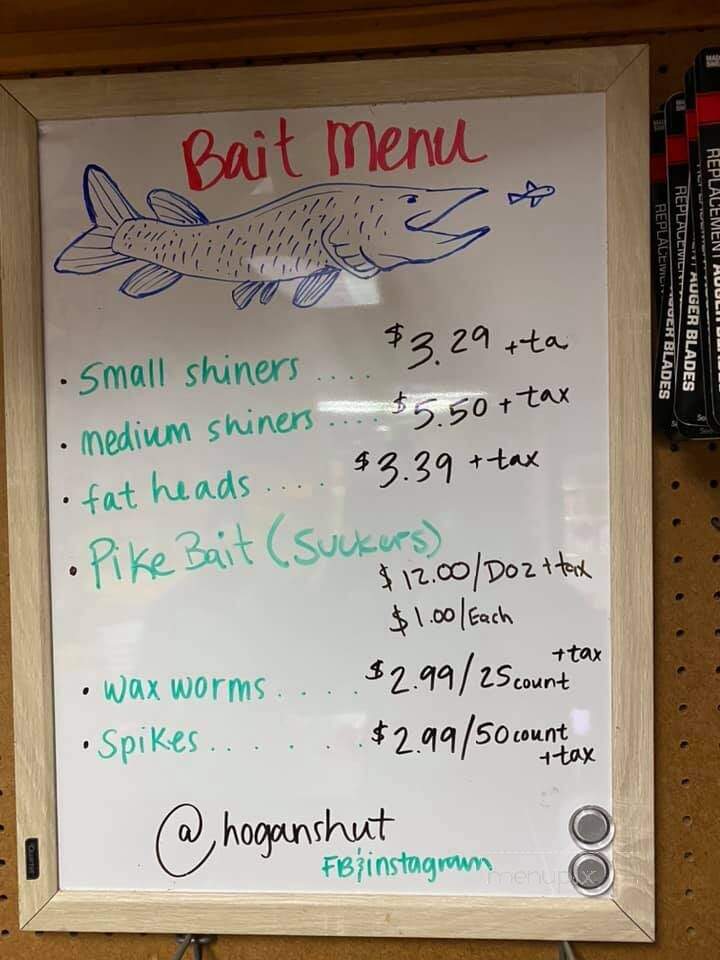 Bait Menu
• Small shiners .... $3.29 + ta
• medium shiners .... $5.50 + tax
• fat heads .... $3.39 + tax
• Pike Bait (Suckers)
$12.00/Doz + tax
$1.00/Each
• wax worms .... $2.99/25 count + tax
• Spikes ...... $2.99/50 count
+ tax
@hoganshut
FB & instagram
menupix
Quartet
REPLACEMENT AUGER BLADES
REPLACEMENT AUGER BLADES
REPLACEMENT AUGER BLADES